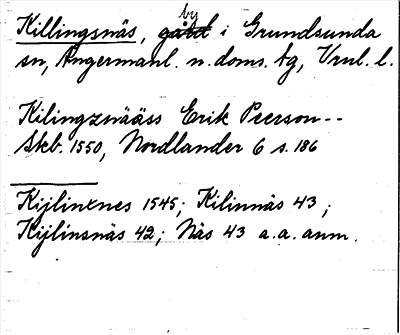 Killingsnäs, by i Grundsunda
sn, Ångermanl. n. doms. tg, Vrnl. l.
Kilingznääss Erik Peerson--
Skb. 1550, Nordlander 6 s. 186
Kijlinxnes 1545; Kilinnäs 43;
Kijlinsnäs 42; Näs 43 a.a. anm.